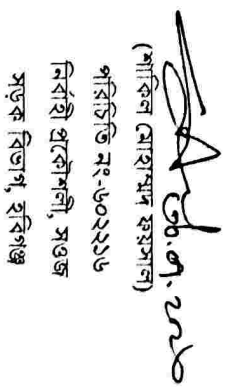 (শাকিল মোহাম্মদ ফয়সাল)
পরিচিতি নং-৬০২২১৬
নির্বাহী প্রকৌশলী, সওজ
সড়ক বিভাগ, হবিগঞ্জ